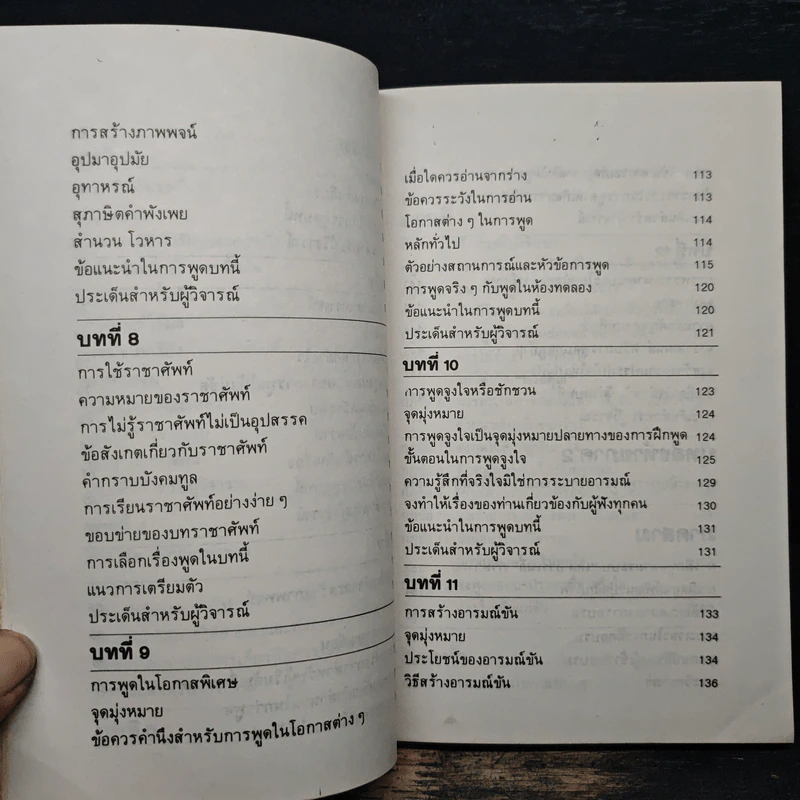 การสร้างภาพพจน์
อุปมาอุปมัย
อุทาหรณ์
สุภาษิตคำพังเพย
สำนวน โวหาร
ข้อแนะนำในการพูดบทนี้
ประเด็นสำหรับผู้วิจารณ์
บทที่ 8
การใช้ราชาศัพท์
ความหมายของราชาศัพท์
การไม่รู้ราชาศัพท์ไม่เป็นอุปสรรค
ข้อสังเกตเกี่ยวกับราชาศัพท์
คำกราบบังคมทูล
การเรียนราชาศัพท์อย่างง่าย ๆ
ขอบข่ายของบทราชาศัพท์
การเลือกเรื่องพูดในบทนี้
แนวการเตรียมตัว
ประเด็นสำหรับผู้วิจารณ์
บทที่ 9
การพูดในโอกาสพิเศษ
จุดมุ่งหมาย
ข้อควรคำนึงสำหรับการพูดในโอกาสต่าง ๆ
เมื่อใดควรอ่านจากร่าง 113
ข้อควรระวังในการอ่าน 113
โอกาสต่าง ๆ ในการพูด 114
หลักทั่วไป 114
ตัวอย่างสถานการณ์และหัวข้อการพูด 115
การพูดจริง ๆ กับพูดในห้องทดลอง 120
ข้อแนะนำในการพูดบทนี้ 120
ประเด็นสำหรับผู้วิจารณ์ 121
บทที่ 10
การพูดจูงใจหรือชักชวน 123
จุดมุ่งหมาย 124
การพูดจูงใจเป็นจุดมุ่งหมายปลายทางของการฝึกพูด 124
ขั้นตอนในการพูดจูงใจ 125
ความรู้สึกที่จริงใจมิใช่การระบายอารมณ์ 129
จงทำให้เรื่องของท่านเกี่ยวข้องกับผู้ฟังทุกคน 130
ข้อแนะนำในการพูดบทนี้ 131
ประเด็นสำหรับผู้วิจารณ์ 131
บทที่ 11
การสร้างอารมณ์ขัน 133
จุดมุ่งหมาย 134
ประโยชน์ของอารมณ์ขัน 134
วิธีสร้างอารมณ์ขัน 136